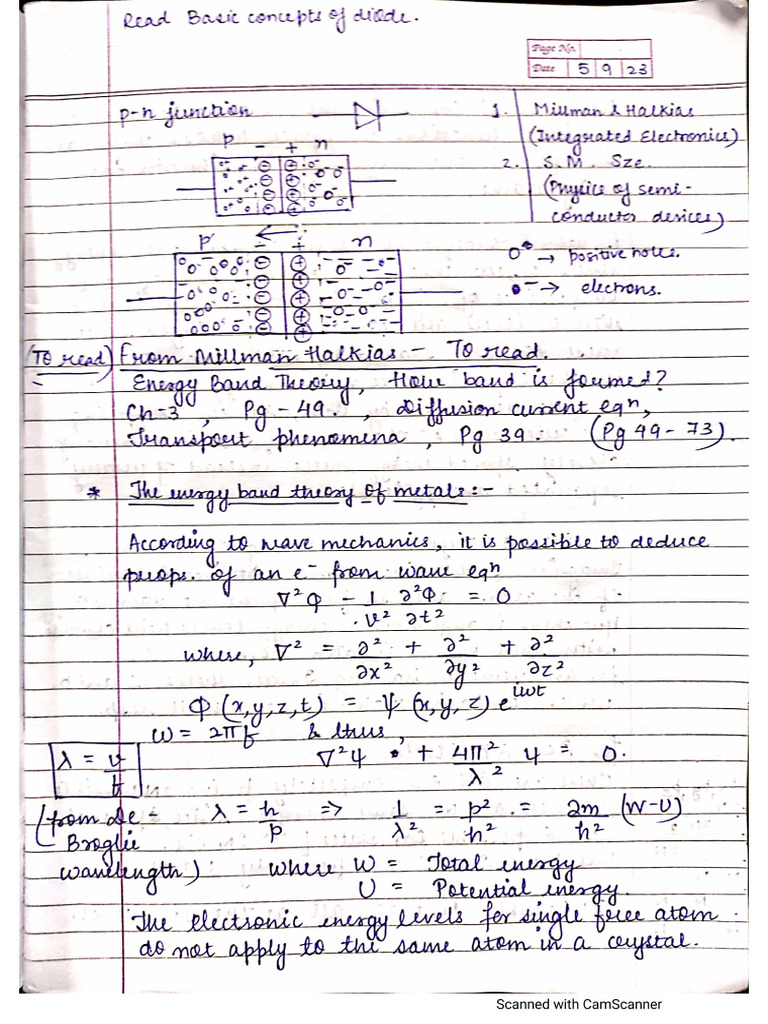 Read Basic concepts of diode.
Page No.
Date 5 9 23
p-n junction
1. Millman & Halkias
(Integrated Electronics)
2. S.M. Sze.
(Physics of semi-
conductor devices)
p - + n
p - + n
O⁺ → positive holes.
•⁻ → electrons.
(To read) From Millman Halkias - To read.
Energy Band Theory, How band is formed?
Ch-3, Pg - 49. , Diffusion current eqⁿ,
Transport phenomena, Pg 39. (Pg 49-73).
* The energy band theory of metals :-
According to wave mechanics, it is possible to deduce
props. of an e⁻ from wave eqⁿ
∇²Φ - 1/v² ∂²Φ/∂t² = 0
where, ∇² = ∂²/∂x² + ∂²/∂y² + ∂²/∂z²
Φ(x,y,z,t) = Ψ(x,y,z) e^iωt
ω = 2πf & thus,
λ = v/f
∇²Ψ + 4π²/λ² Ψ = 0.
(from De-Broglie wavelength) λ = h/p ⇒ 1/λ² = p²/h² = 2m/h² (W-U)
where W = Total energy
U = Potential energy.
The electronic energy levels for single free atom
do not apply to the same atom in a crystal.
Scanned with CamScanner